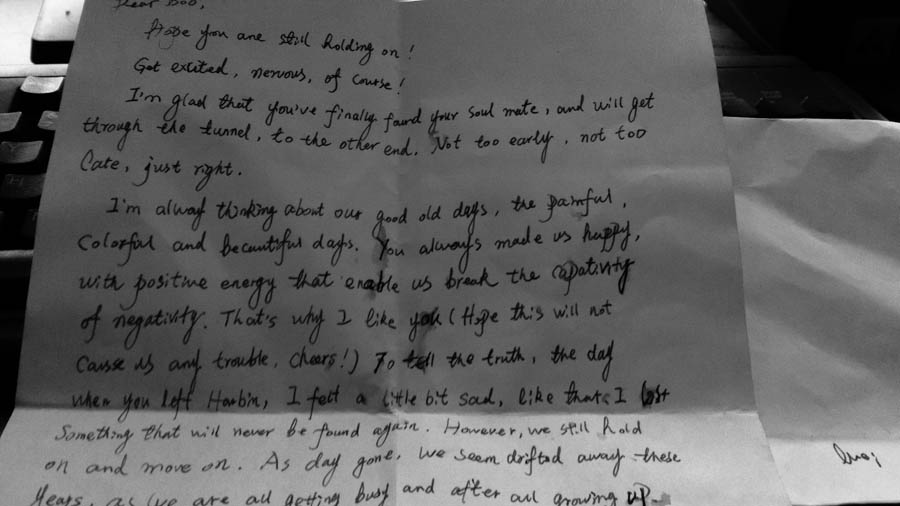 Dear Boo,
Hope you are still holding on!
Got excited, nervous, of course!
I'm glad that you've finally found your soul mate, and will get
through the tunnel, to the other end. Not too early, not too
Late, just right.
I'm alway thinking about our good old days, the painful,
Colorful and beautiful days. You always made us happy,
with positive energy that enable us break the capativity
of negativity. That's why I like you (Hope this will not
Cause us any trouble, cheers!) To tell the truth, the day
when you left Harbin, I felt a little bit sad, like that I lost
Something that will never be found again. However, we still hold
on and move on. As day gone, we seem drifted away these
Years, as we are all getting busy and after all growing up